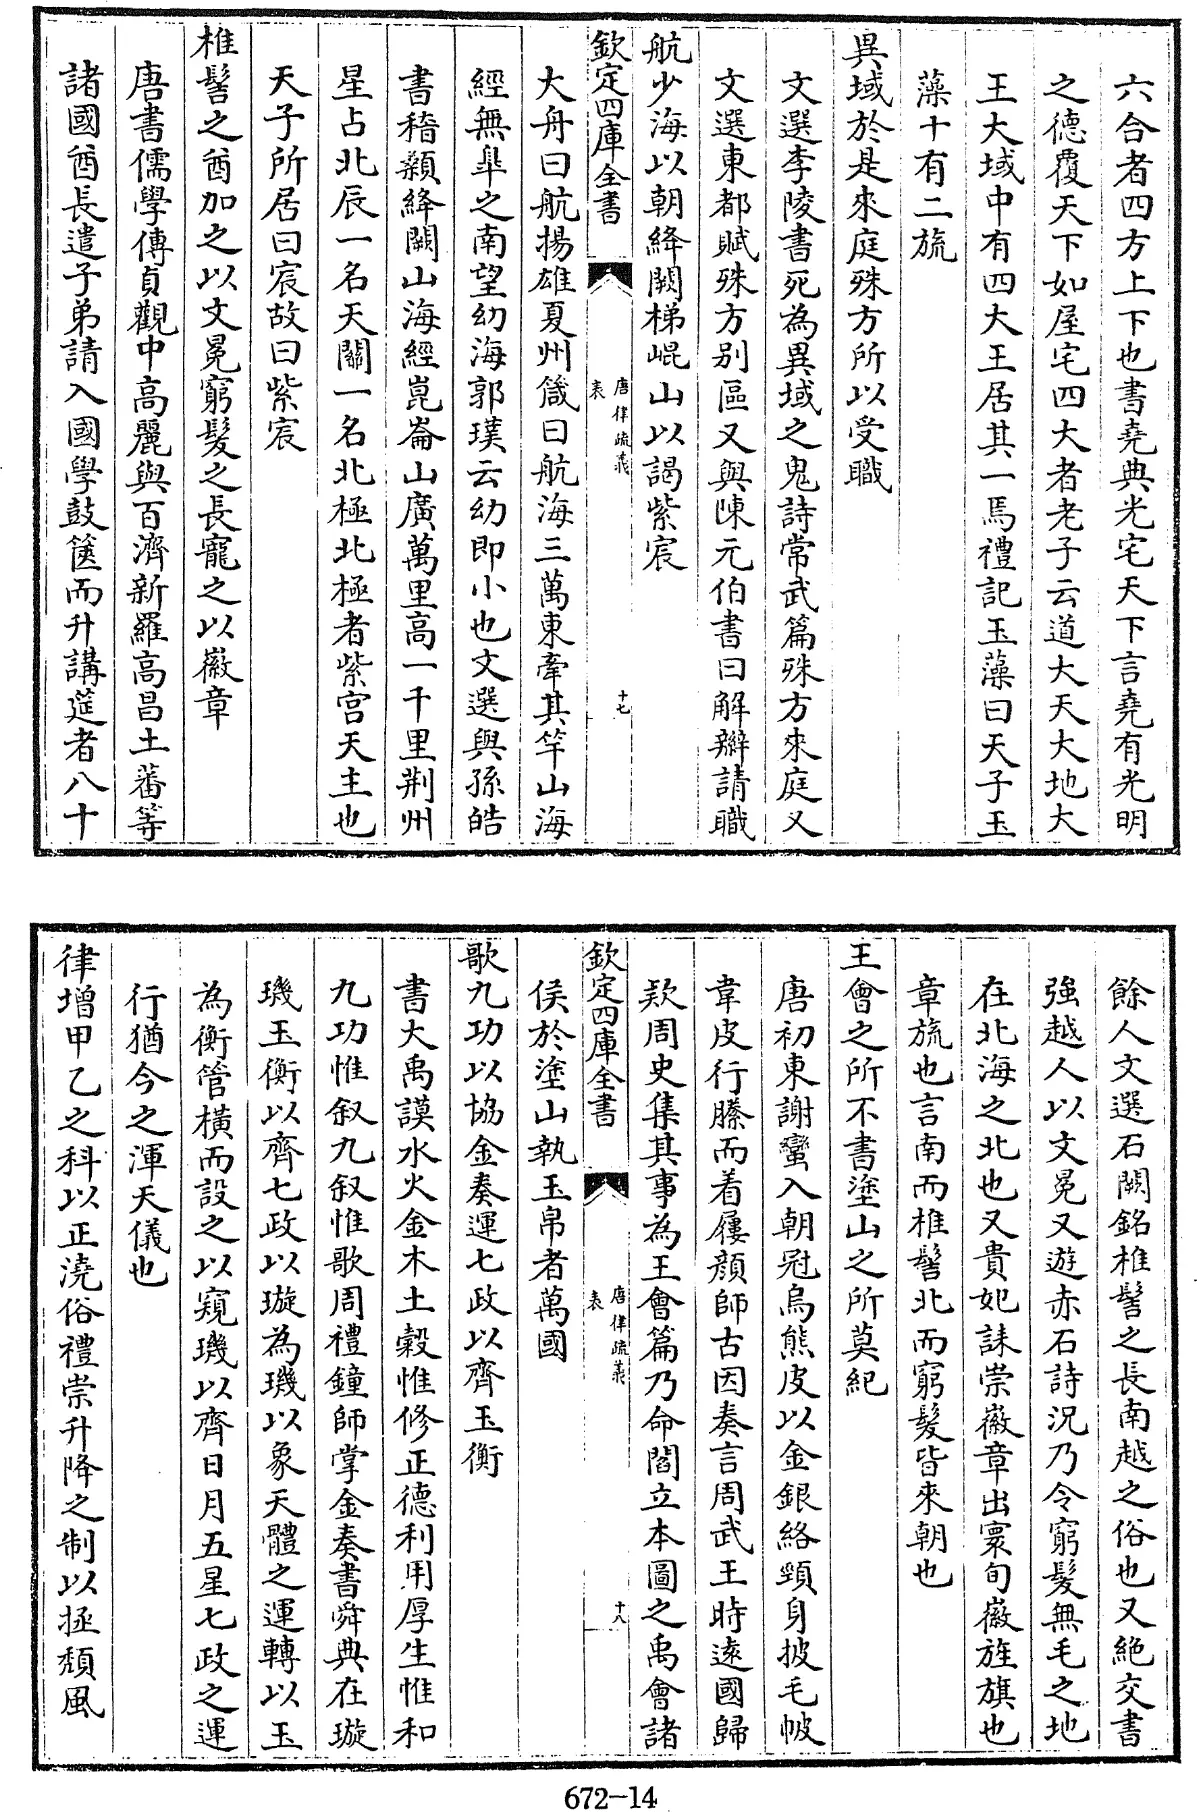 六合者四方上下也書堯典光宅天下言堯有光明
之德覆天下如屋宅四大者老子云道大天大地大
王大域中有四大王居其一焉禮記玉藻曰天子玉
藻十有二旒
異域於是來庭殊方所以受職
文選李陵書死為異域之鬼詩常武篇殊方來庭又
文選東都賦殊方别區又與陳元伯書曰解辮請職
航少海以朝絳闕梯崐山以謁紫宸
欽定四庫全書
唐律疏義
表
十七
大舟曰航揚雄夏州箴曰航海三萬東牽其竿山海
經無臯之南望幼海郭璞云幼即小也文選與孫皓
書稽顙絳闕山海經崑崙山廣萬里高一千里荆州
星占北辰一名天關一名北極北極者紫宮天主也
天子所居曰宸故曰紫宸
椎髻之酋加之以文冕窮髮之長寵之以徽章
唐書儒學傳貞觀中高麗與百濟新羅高昌土蕃等
諸國酋長遣子弟請入國學鼓篋而升講筵者八十
餘人文選石闕銘椎髻之長南越之俗也又絶交書
強越人以文冕又遊赤石詩況乃令窮髮無毛之地
在北海之北也又貴妃誄崇徽章出寰旬徽旌旗也
章旒也言南而椎髻北而窮髮皆來朝也
王會之所不書塗山之所莫紀
唐初東謝蠻入朝冠烏熊皮以金銀絡頸身披毛帔
韋皮行縢而着屨顔師古因奏言周武王時逺國歸
欵周史集其事為王會篇乃命閻立本圖之禹會諸
欽定四庫全書
唐律疏義
表
十八
侯於塗山執玉帛者萬國
歌九功以協金奏運七政以齊玉衡
書大禹謨水火金木土穀惟修正德利用厚生惟和
九功惟叙九叙惟歌周禮鐘師掌金奏書舜典在璇
璣玉衡以齊七政以璇為璣以象天體之運轉以玉
為衡管橫而設之以窺璣以齊日月五星七政之運
行猶今之渾天儀也
律增甲乙之科以正澆俗禮崇升降之制以拯頽風
672-14